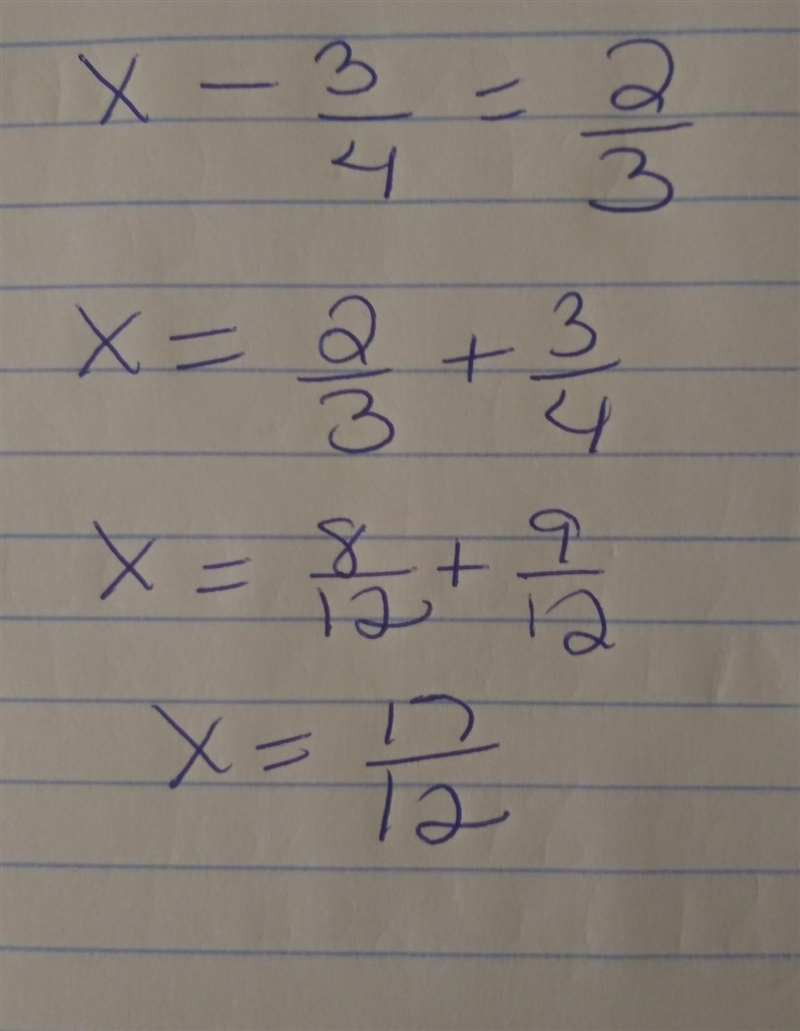 x - 3/4 = 2/3
x = 2/3 + 3/4
x = 8/12 + 9/12
x = 17/12